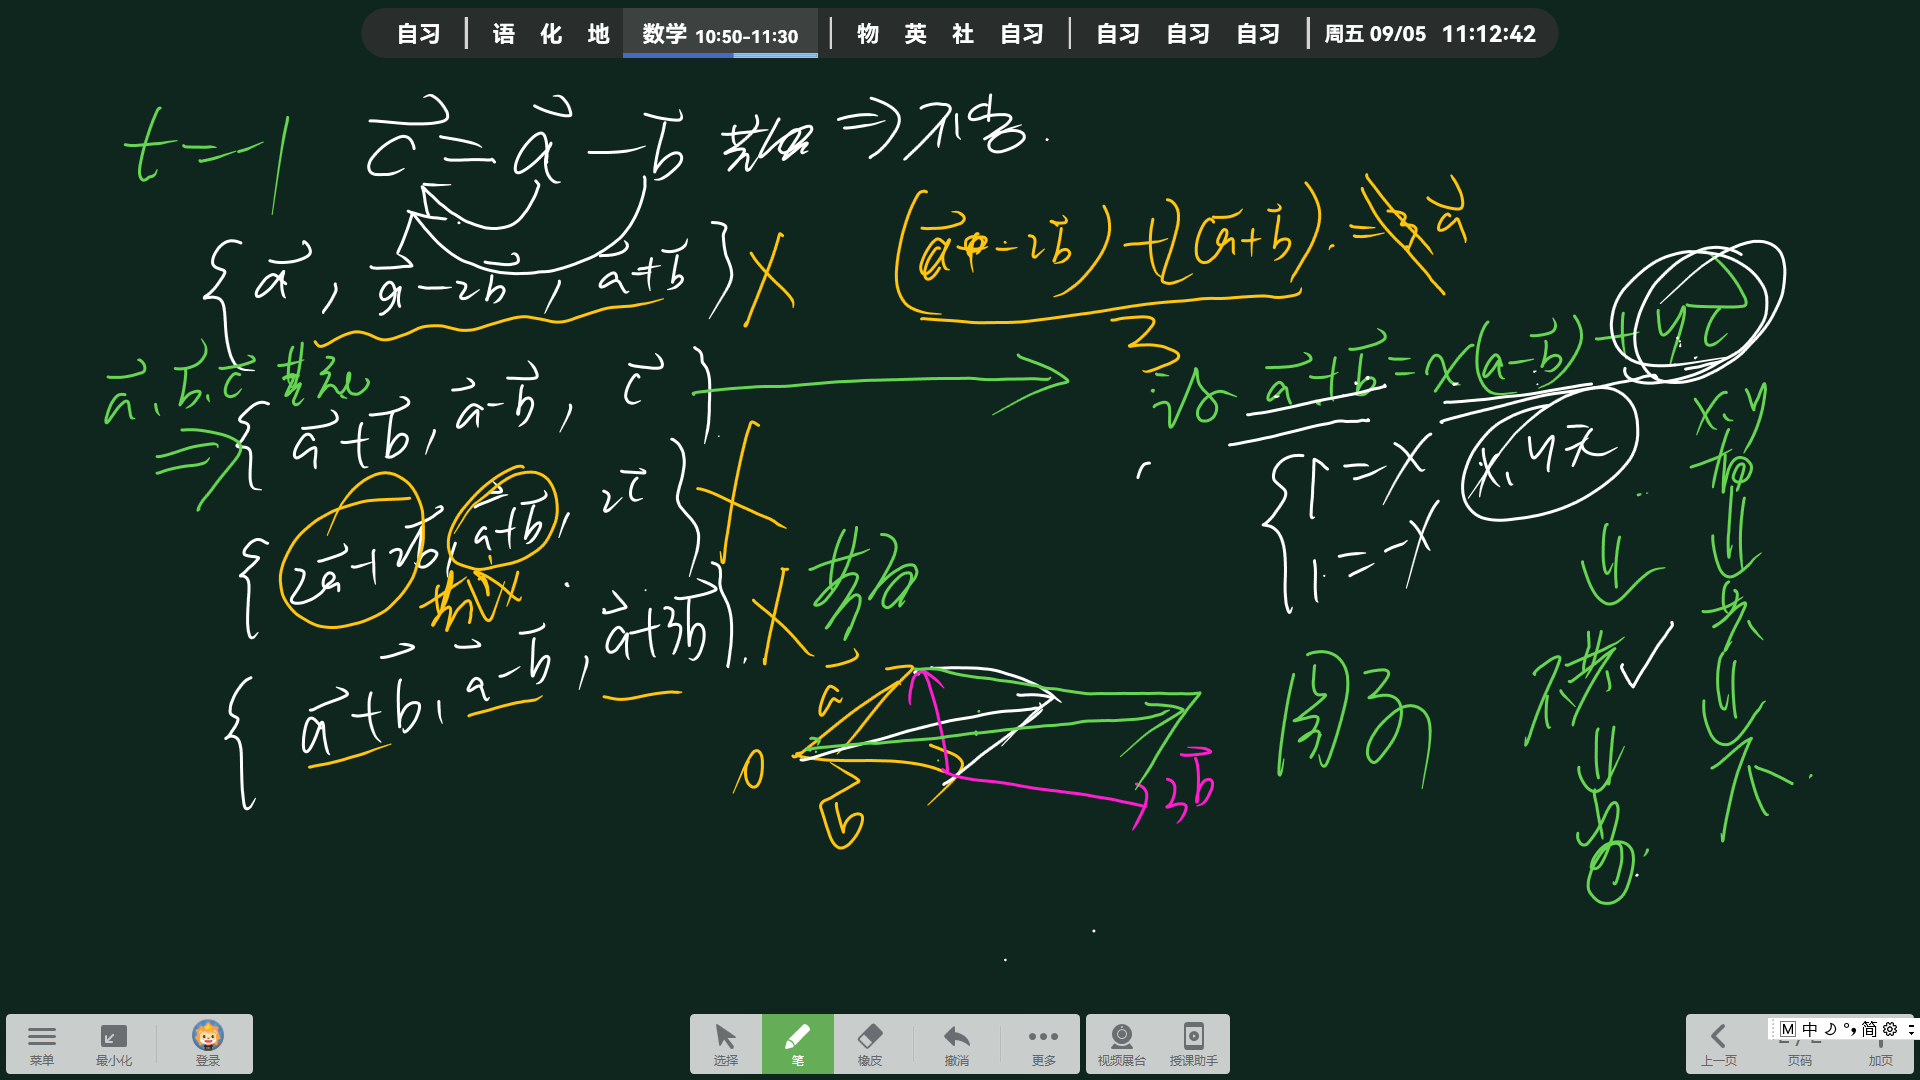 自习 | 语 化 地 数学 10:50-11:30 | 物 英 社 自习 | 自习 自习 自习 | 周五 09/05 11:12:42
t=-1 c=a-b 共 ⇒ 不
{a, a-2b, a+b} X (a-2b)+2(a+b)=a
3
a、b、c 共 ⇒ {a+b, a-b, c} → 设 a+b=x(a-b)+yc
{1=x x、y无
1=-x
x、y有
{2a+2b, a+b, 2c} X
共线
{a+b, a-b, a+3b} X 共面
不共 ✓
共
不
a
0
b
3b
菜单 最小化 登录 选择 笔 橡皮 撤消 更多 视频展台 授课助手 上一页 页码 加页
M 中 简